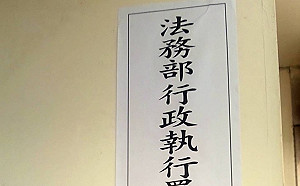 法務部行政執行署